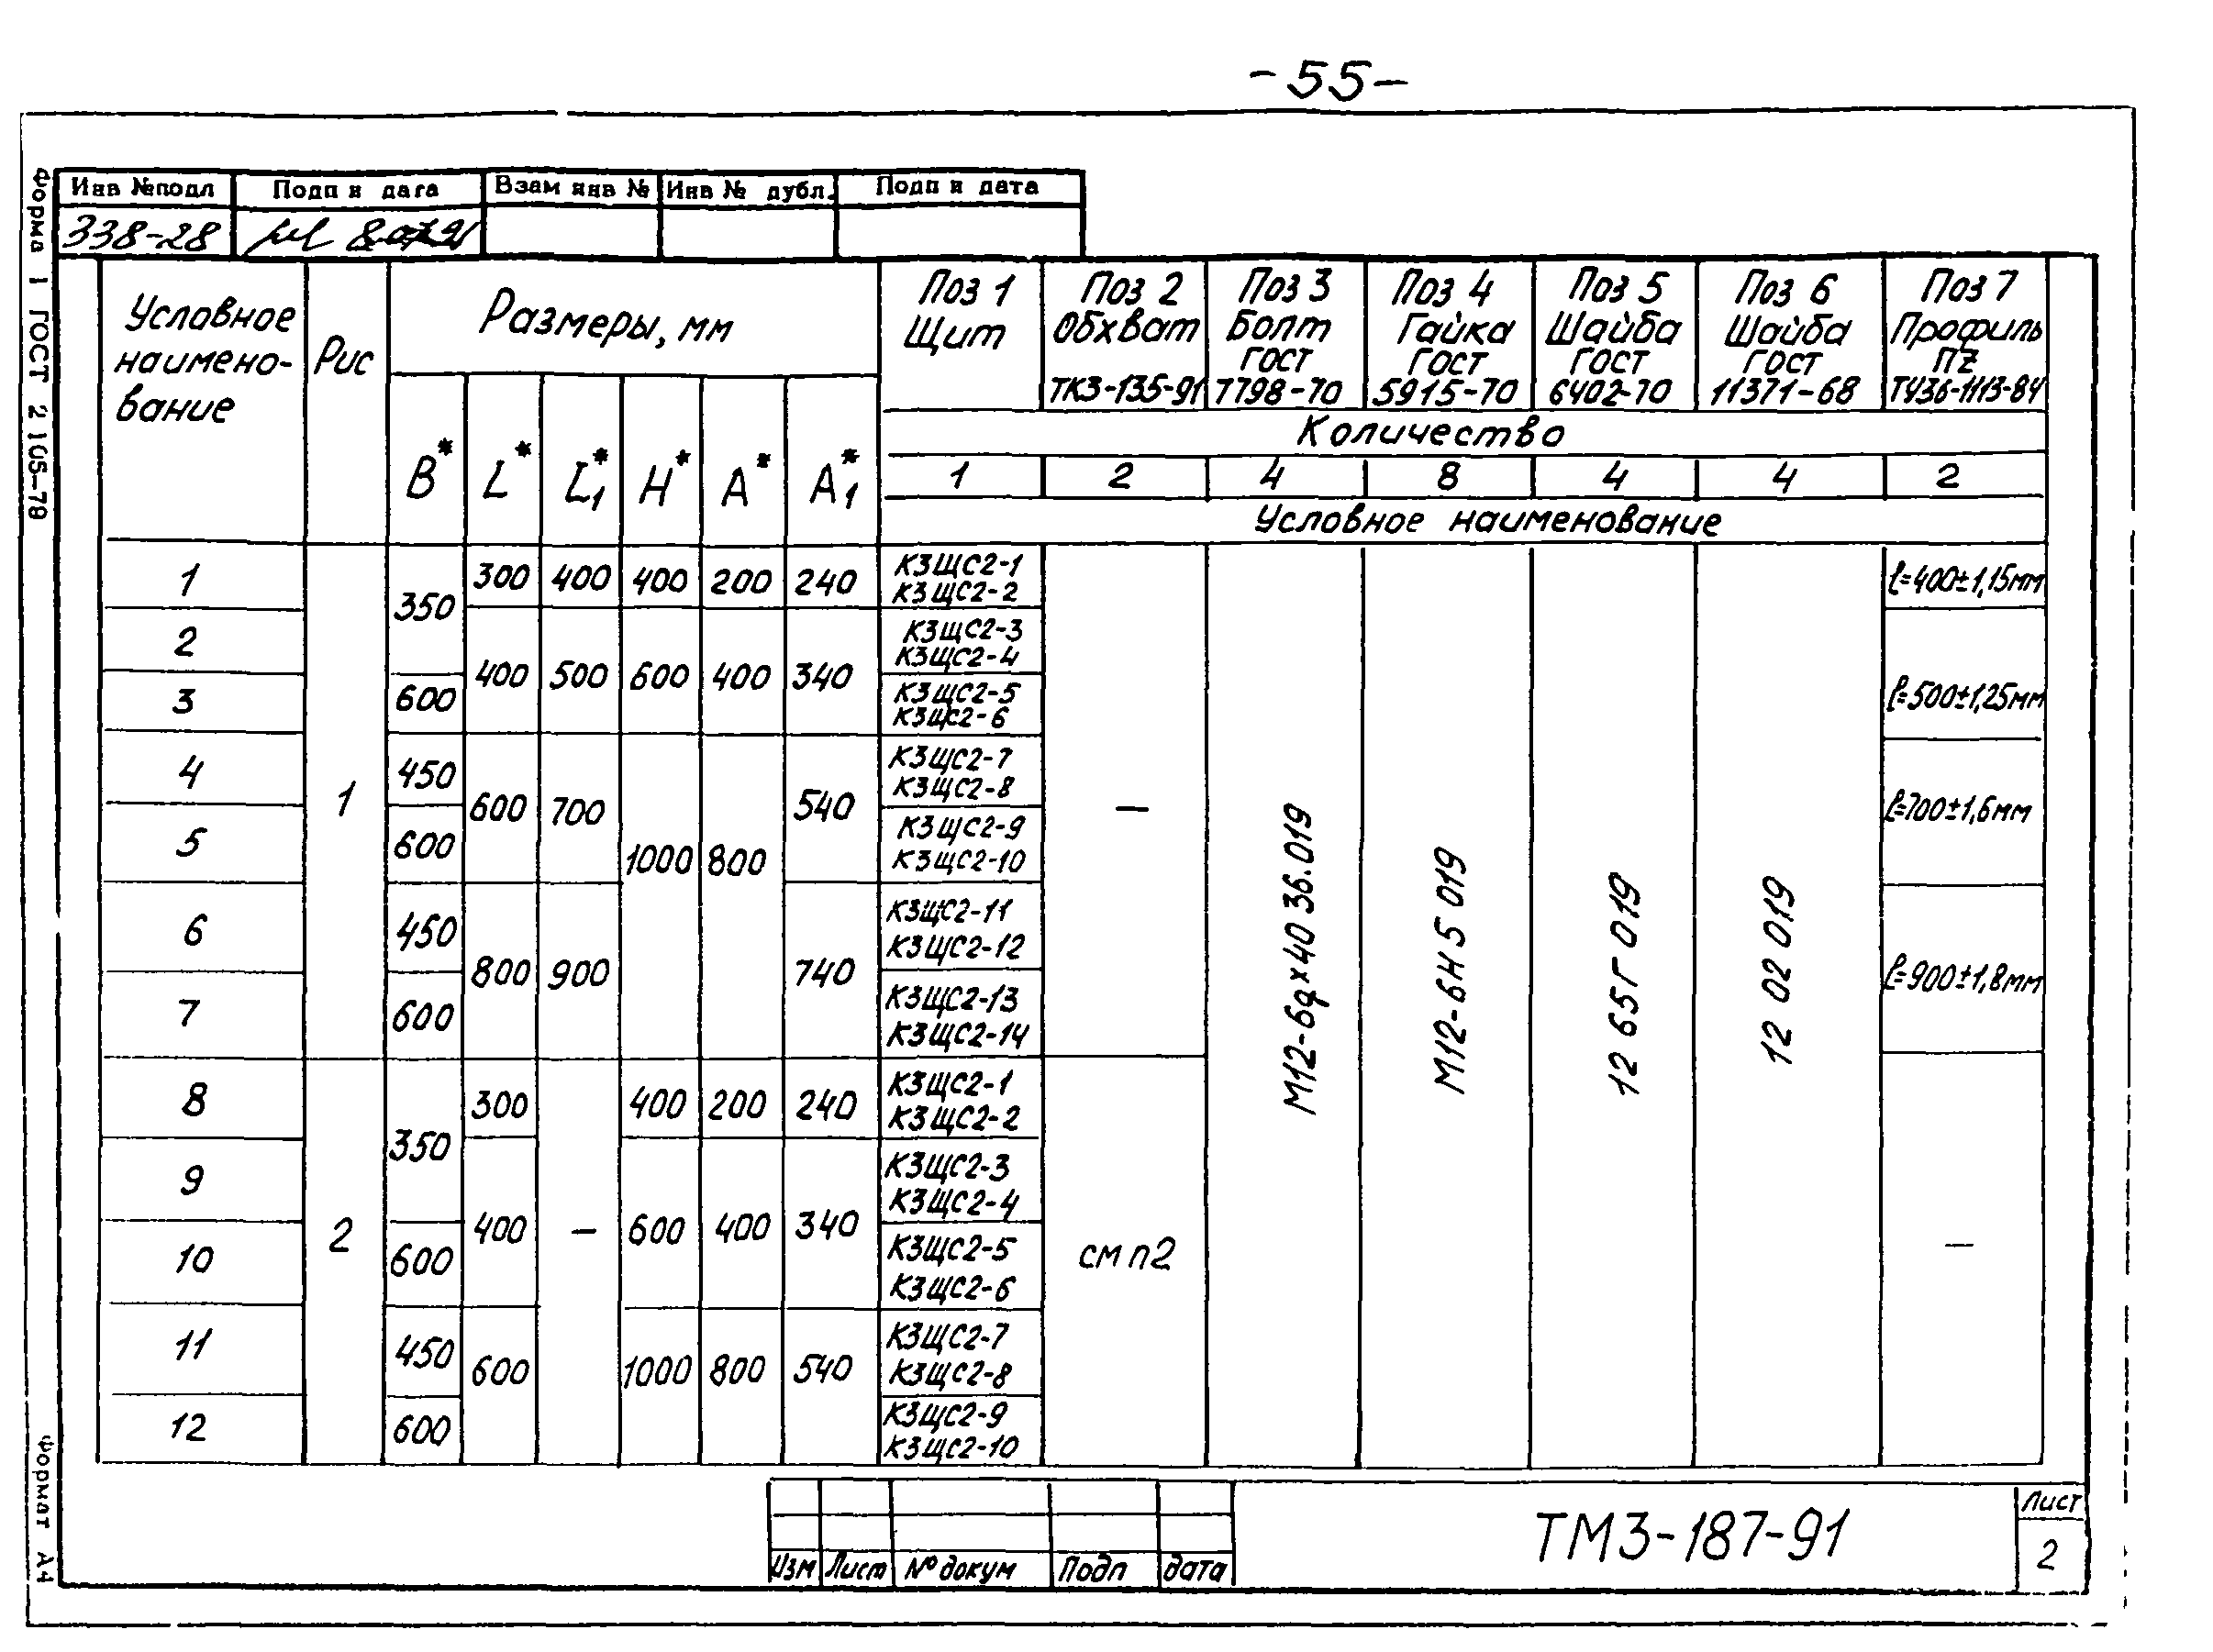 -55-
Форма 1 ГОСТ 2 105-78
Инв №подл Подп и дата Взам инв № Инв № дубл. Подп и дата
338-28
Условное наимено-вание Рис Размеры, мм Поз 1 Щит Поз 2 Обхват ТК3-135-91 Поз 3 Болт ГОСТ 7798-70 Поз 4 Гайка ГОСТ 5915-70 Поз 5 Шайба ГОСТ 6402-70 Поз 6 Шайба ГОСТ 11371-68 Поз 7 Профиль ПZ ТУ36-1113-84
Количество
B* L* L1* H* A* A1* 1 2 4 8 4 4 2
Условное наименование
1 1 350 300 400 400 200 240 КЗЩС2-1 КЗЩС2-2 — М12-6gх40 36.019 М12-6Н 5 019 12 65Г 019 12 02 019 ℓ=400±1,15мм
2 400 500 600 400 340 КЗЩС2-3 КЗЩС2-4 ℓ=500±1,25мм
3 600 КЗЩС2-5 КЗЩС2-6
4 450 600 700 1000 800 540 КЗЩС2-7 КЗЩС2-8 ℓ=700±1,6мм
5 600 КЗЩС2-9 КЗЩС2-10
6 450 800 900 740 КЗЩС2-11 КЗЩС2-12 ℓ=900±1,8мм
7 600 КЗЩС2-13 КЗЩС2-14
8 2 350 300 — 400 200 240 КЗЩС2-1 КЗЩС2-2 см п2 —
9 400 600 400 340 КЗЩС2-3 КЗЩС2-4
10 600 КЗЩС2-5 КЗЩС2-6
11 450 600 1000 800 540 КЗЩС2-7 КЗЩС2-8
12 600 КЗЩС2-9 КЗЩС2-10
Изм Лист № докум Подп дата
ТМ3-187-91
Лист
2
Формат А4